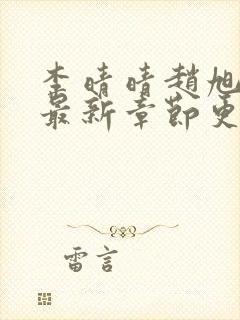 李晴晴趙旭
最新章節更
雷言